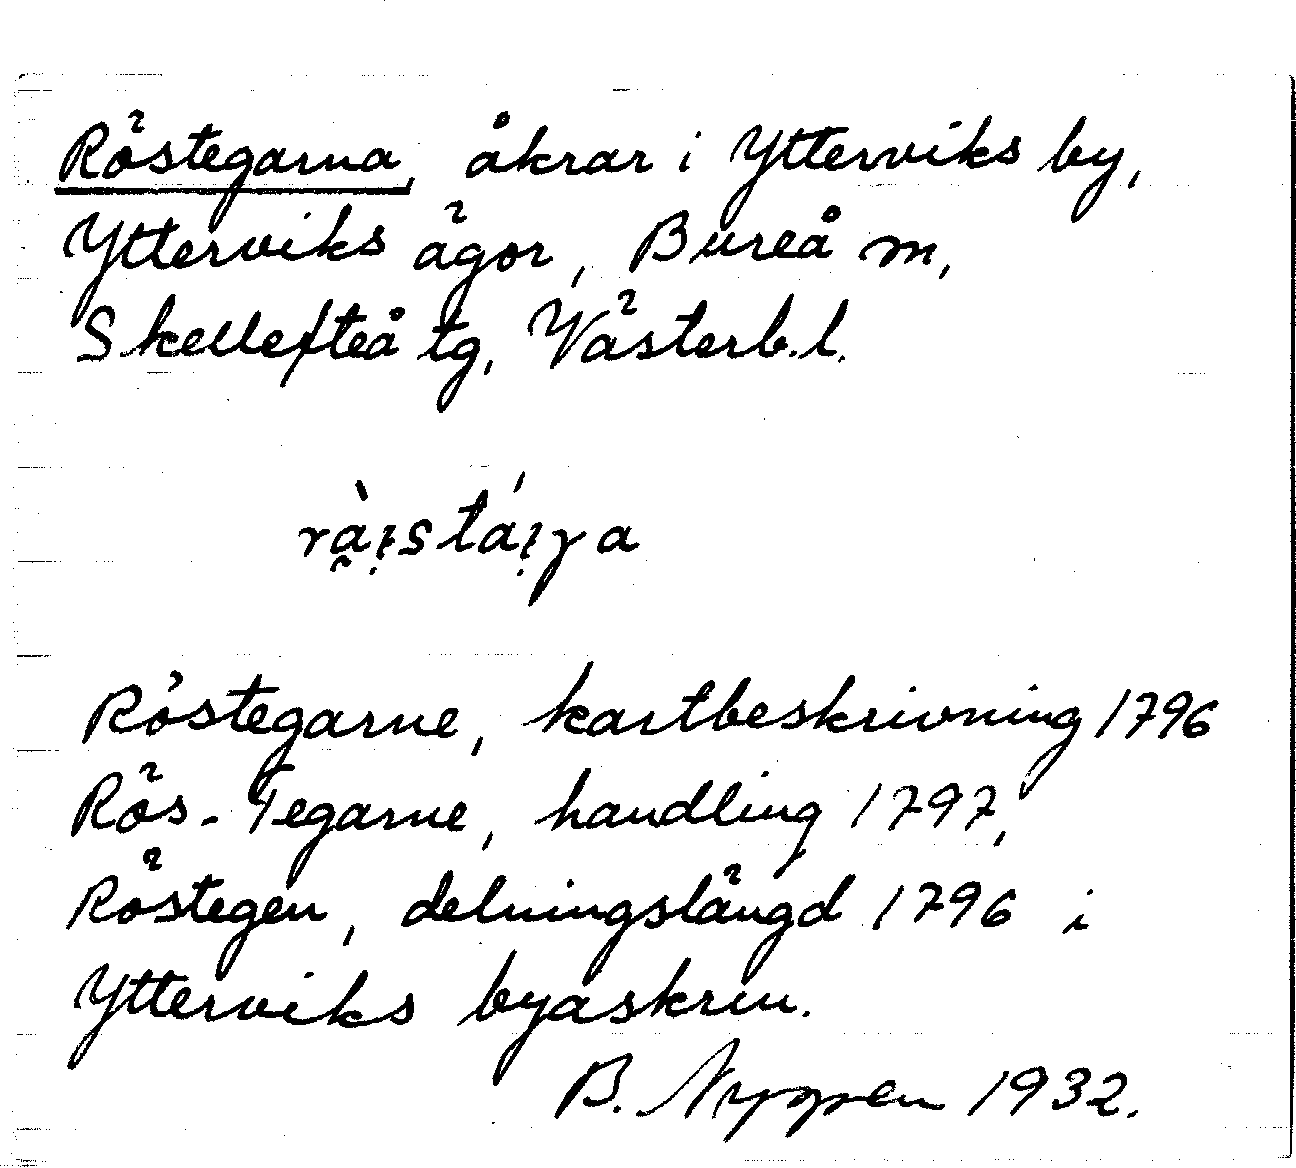 Röstegarna, åkrar i Ytterviks by,
Ytterviks ägor, Bureå m,
Skellefteå tg, Västerb.l.
Röstegarne, kartbeskrivning 1796
Rös-Tegarne, handling 1797,
Röstegen, delningslängd 1796 i
Ytterviks byaskrin.
B. Nyppen 1932.